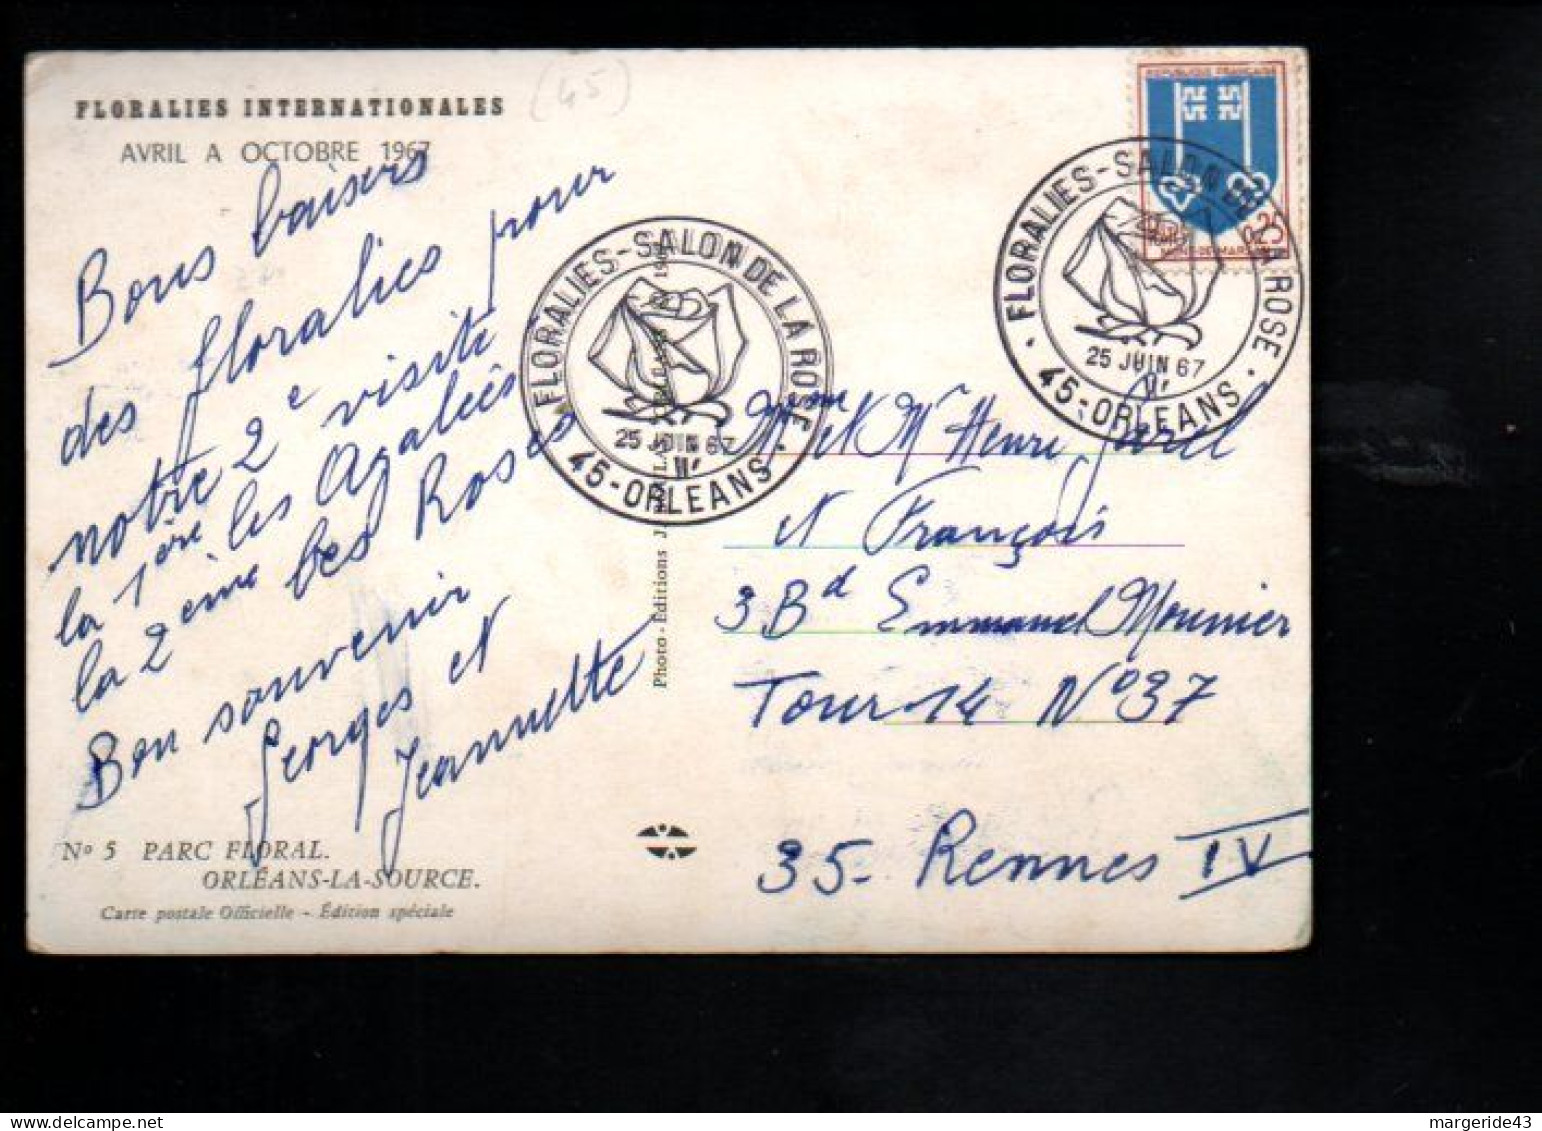 (45)
FLORALIES INTERNATIONALES
AVRIL A OCTOBRE 1967
Bons baisers
des floralies pour
notre 2e visite
la 1ère les Azaliés
la 2ème les Roses
Bon souvenir
Georges et
Jeannette
No 5 PARC FLORAL.
ORLÉANS-LA-SOURCE.
Carte postale Officielle - Édition spéciale
Photo-Éditions J.
FLORALIES-SALON DE LA ROSE
25 JUIN 67
45-ORLEANS
REPUBLIQUE FRANÇAISE
0,25
MONT-DE-MARSAN
FLORALIES-SALON DE LA ROSE
25 JUIN 67
45-ORLEANS
Mme et Mr Henri
et François
3 Bd Emmanuel Mounier
Tour 14 No 37
35- Rennes IV
margeride43